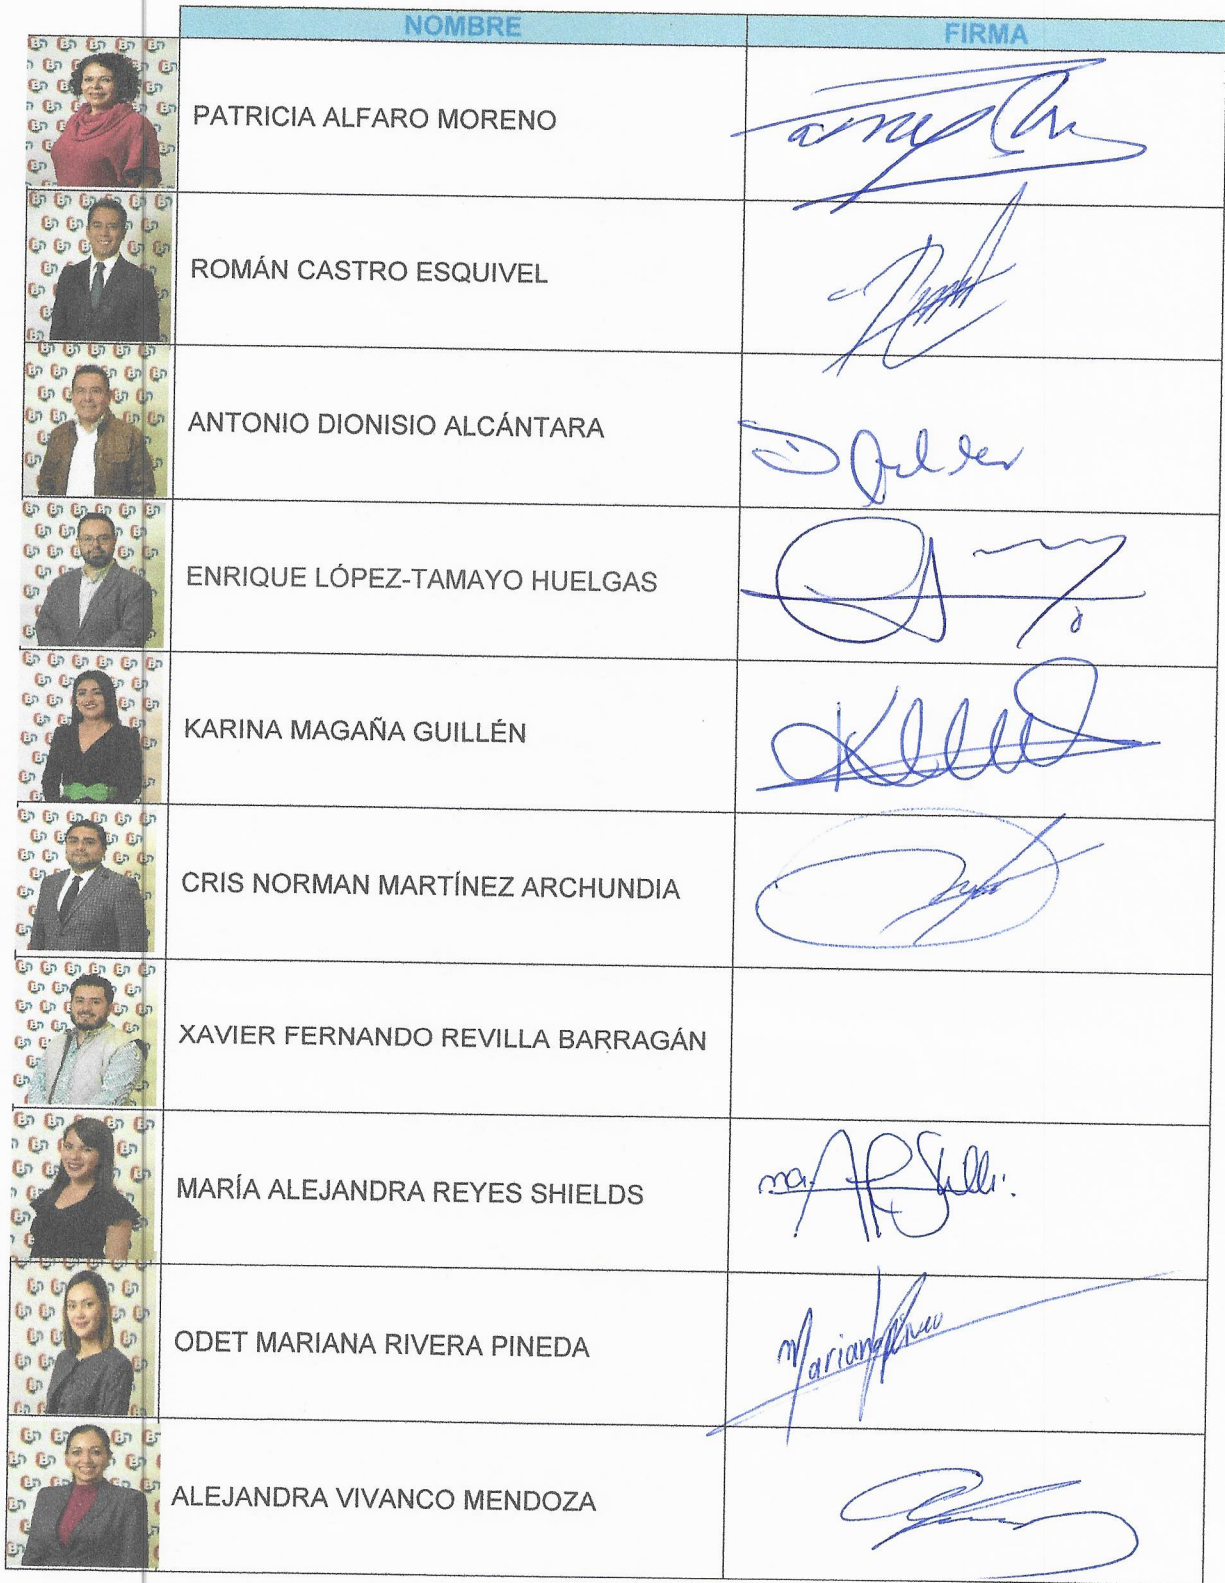 NOMBRE FIRMA
PATRICIA ALFARO MORENO
ROMÁN CASTRO ESQUIVEL
ANTONIO DIONISIO ALCÁNTARA
ENRIQUE LÓPEZ-TAMAYO HUELGAS
KARINA MAGAÑA GUILLÉN
CRIS NORMAN MARTÍNEZ ARCHUNDIA
XAVIER FERNANDO REVILLA BARRAGÁN
MARÍA ALEJANDRA REYES SHIELDS
ODET MARIANA RIVERA PINEDA
ALEJANDRA VIVANCO MENDOZA